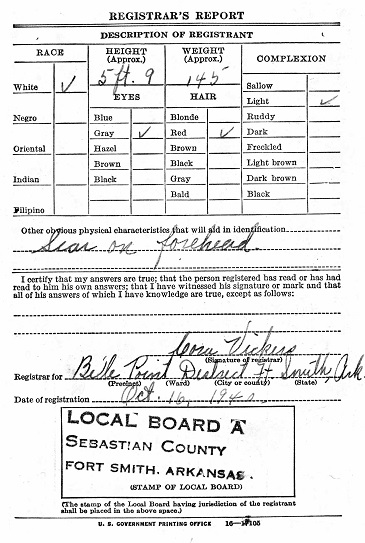 REGISTRAR'S REPORT
DESCRIPTION OF REGISTRANT
RACE
HEIGHT (Approx.)
WEIGHT (Approx.)
COMPLEXION
5 ft. 9
145
White ✓
EYES
HAIR
Sallow
Light ✓
Negro
Blue
Blonde
Ruddy
Gray ✓
Red ✓
Dark
Oriental
Hazel
Brown
Freckled
Brown
Black
Light brown
Indian
Black
Gray
Dark brown
Bald
Black
Filipino
Other obvious physical characteristics that will aid in identification
Scar on forehead.
I certify that my answers are true; that the person registered has read or has had
read to him his own answers; that I have witnessed his signature or mark and that
all of his answers of which I have knowledge are true, except as follows:
Vickers
(Signature of registrar)
Registrar for Belle Point District Ft Smith, Ark.
(Precinct) (Ward) (City or county) (State)
Date of registration Oct. 16, 1940
LOCAL BOARD A
SEBASTIAN COUNTY
FORT SMITH, ARKANSAS.
(STAMP OF LOCAL BOARD)
(The stamp of the Local Board having jurisdiction of the registrant
shall be placed in the above space.)
U. S. GOVERNMENT PRINTING OFFICE 16-17105